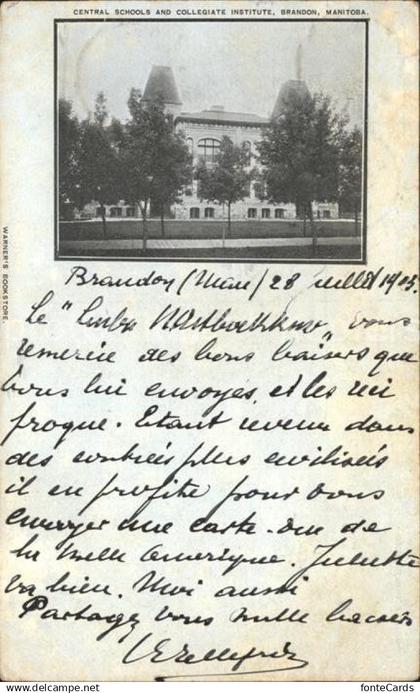 CENTRAL SCHOOLS AND COLLEGIATE INSTITUTE, BRANDON, MANITOBA.
WARNER'S BOOKSTORE.
Brandon (Man) 28 juillet 1905.
Le vous
remercie des bons baisers que
vous lui envoyés, et les
. Etant revenu dans
des contrées plus civilisés
il en profite pour vous
envoyer une carte. de
la belle Amerique. Juliette
va bien. Moi aussi
Partagez vous mille baisers